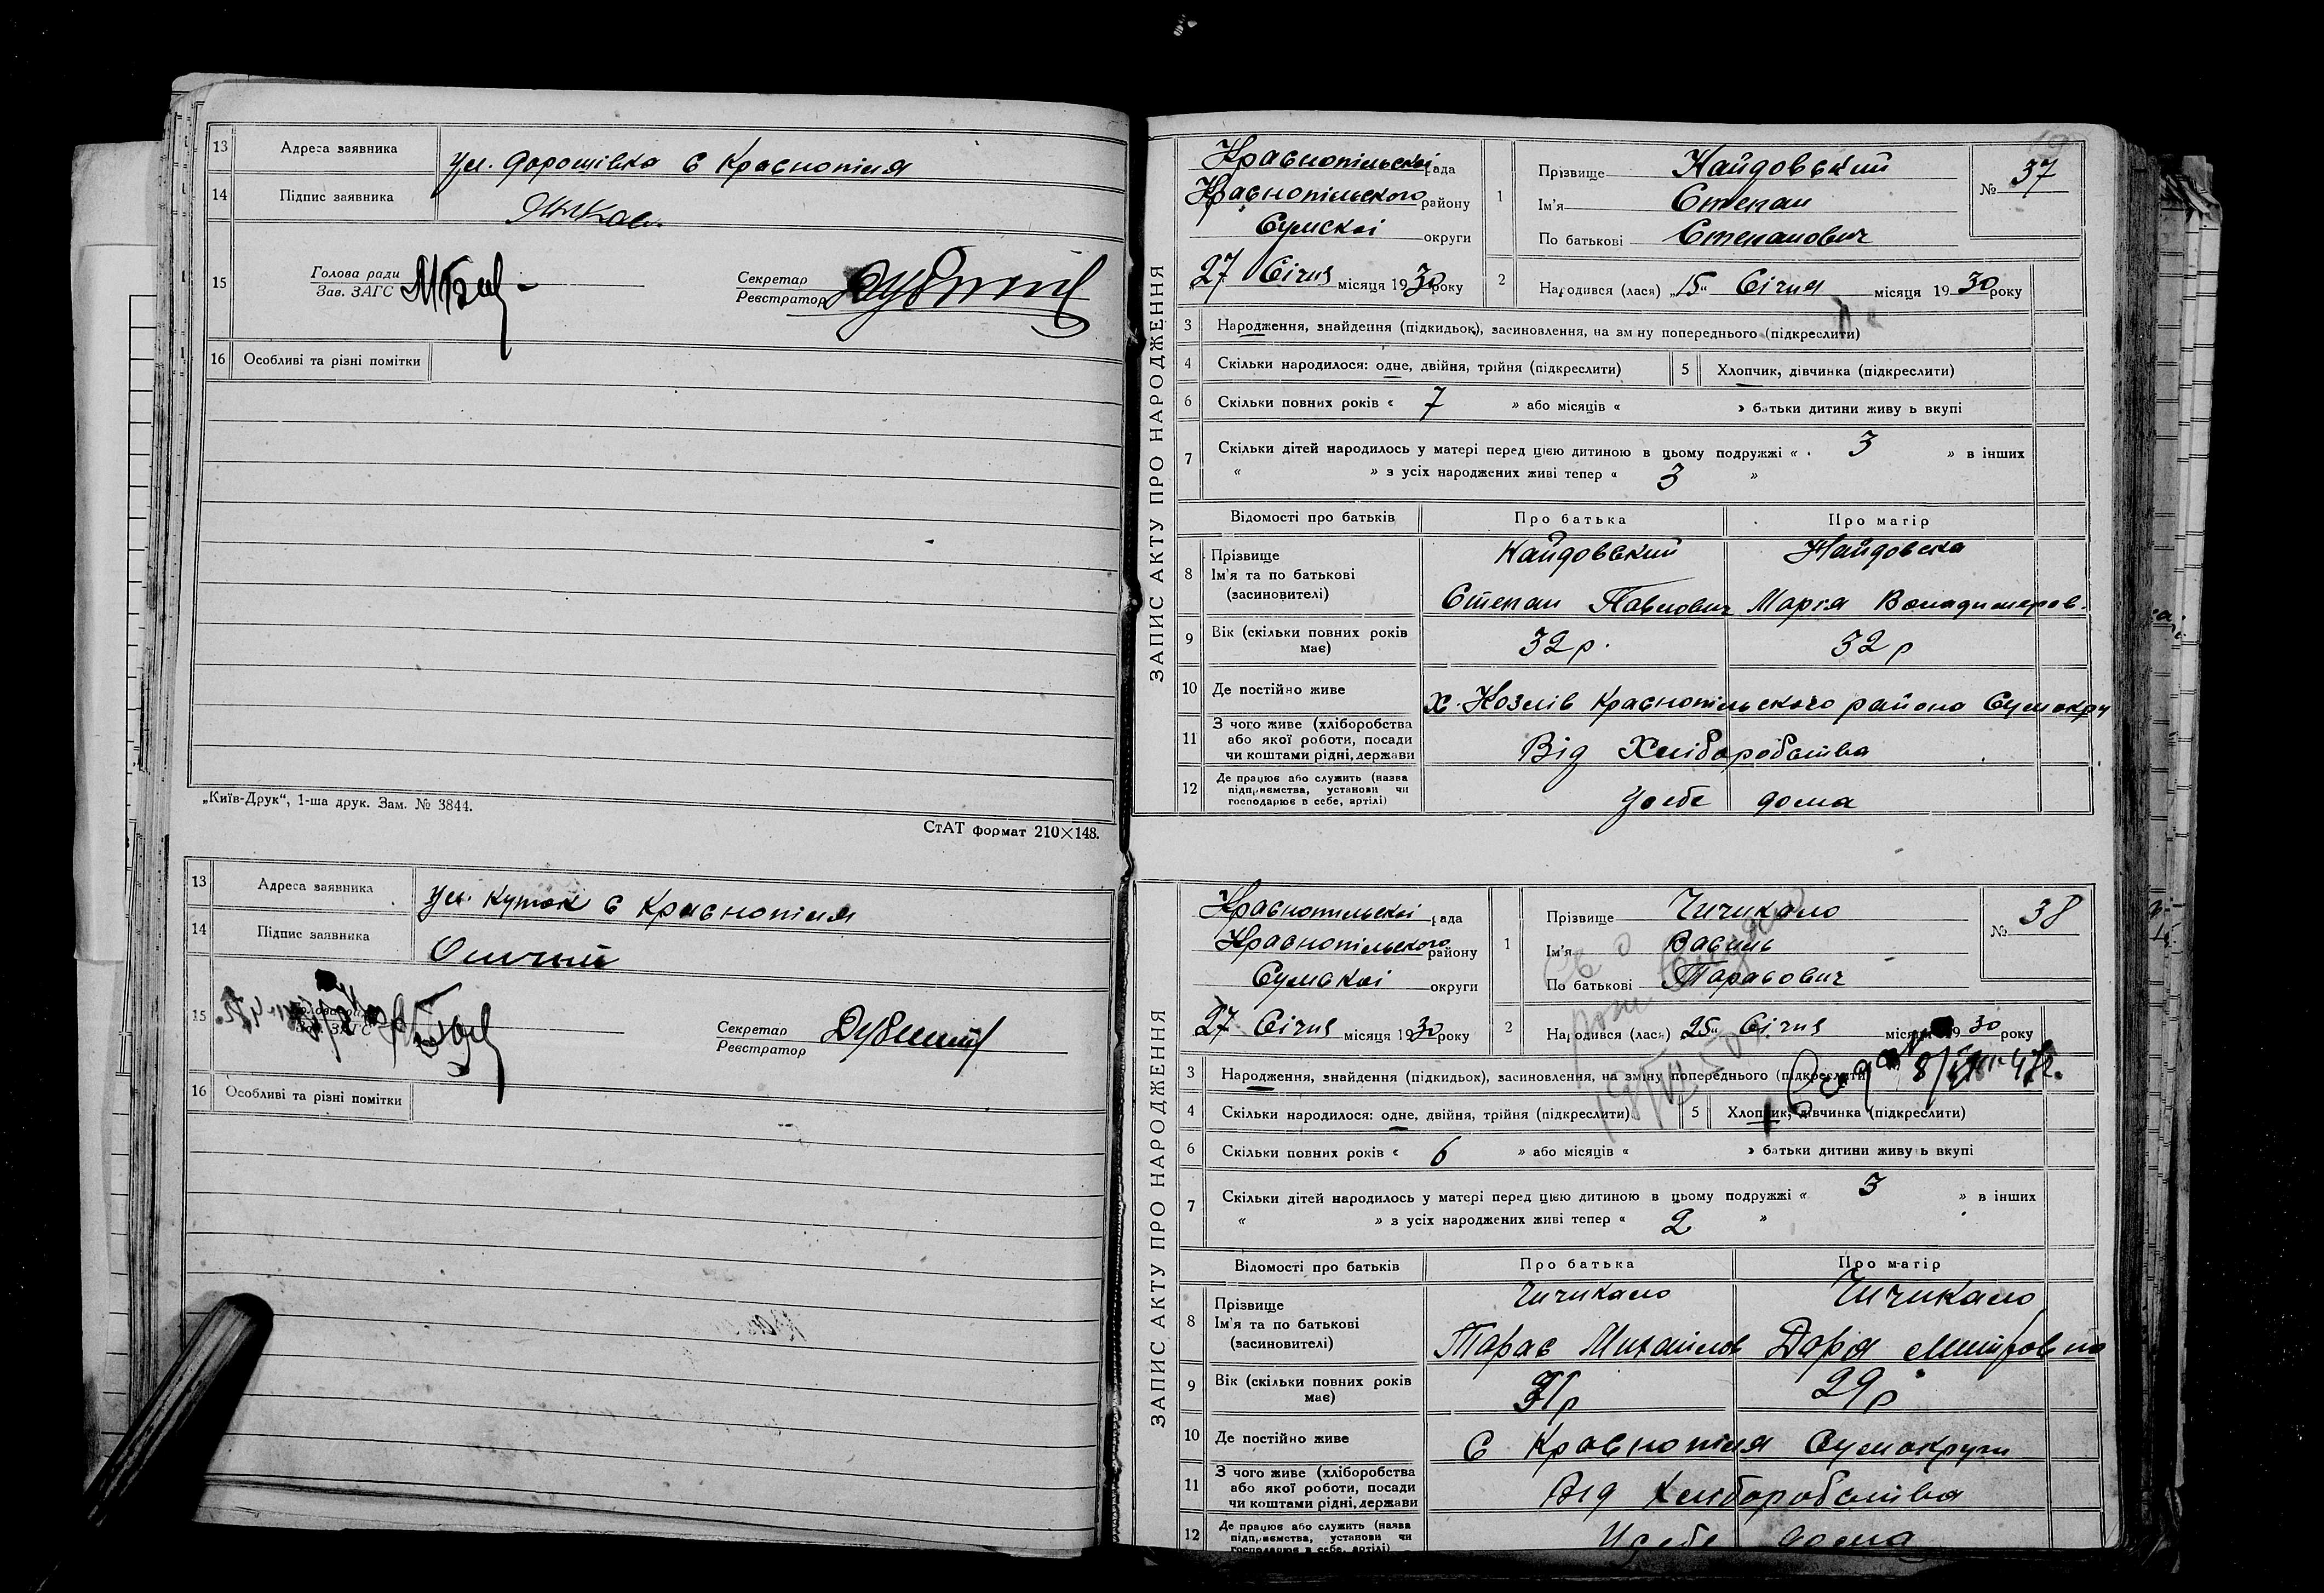 13 Адреса заявника ул. Дорошівка с Краснопілля
14 Підпис заявника
15 Голова ради Зав. ЗАГС Секретар Реєстратор
16 Особливі та різні помітки
„Київ-Друк“, 1-ша друк. Зам. № 3844.
СтАТ формат 210×148.
13 Адреса заявника ул. Куток с Краснопілля
14 Підпис заявника
15 Голова ради Зав. ЗАГС Секретар Реєстратор
16 Особливі та різні помітки
ЗАПИС АКТУ ПРО НАРОДЖЕННЯ
Краснопільскої рада
Краснопільского району
Сумскої округи
27 Січня місяця 1930 року
1 Прізвище Кайдовський
Ім'я Степан
По батькові Степанович
№ 37
2 Народився (лася) „15“ Січня місяця 1930 року
3 Народження, знайдення (підкидьок), засиновлення, на зміну попереднього (підкреслити)
4 Скільки народилося: одне, двійня, трійня (підкреслити) 5 Хлопчик, дівчинка (підкреслити)
6 Скільки повних років « 7 » або місяців « » батьки дитини живуть вкупі
7 Скільки дітей народилось у матері перед цією дитиною в цьому подружжі « 3 » в інших
« » з усіх народжених живі тепер « 3 »
Відомості про батьків Про батька Про матір
8 Прізвище Кайдовський Кайдовска
Ім'я та по батькові
(засиновителі) Степан Павлович Марія Владимеров.
9 Вік (скільки повних років має) 32 р. 32 р
10 Де постійно живе х. Козлів Краснопільского района Сумокру
11 З чого живе (хліборобства або якої роботи, посади чи коштами рідні, держави Від Хліборобства
12 Де працює або служить (назва підприємства, установи чи господарює в себе, артілі) У себе дома
ЗАПИС АКТУ ПРО НАРОДЖЕННЯ
Краснопильскої рада
Краснопільского району
Сумскої округи
27 Січня місяця 1930 року
1 Прізвище Чичикало
Ім'я Василь
По батькові Тарасович
№ 38
2 Народився (лася) 25“ Січня місяця 1930 року
3 Народження, знайдення (підкидьок), засиновлення, на зміну попереднього (підкреслити)
4 Скільки народилося: одне, двійня, трійня (підкреслити) 5 Хлопчик, дівчинка (підкреслити)
6 Скільки повних років « 6 » або місяців « » батьки дитини живуть вкупі
7 Скільки дітей народилось у матері перед цією дитиною в цьому подружжі « 3 » в інших
« » з усіх народжених живі тепер « 2 »
Відомості про батьків Про батька Про матір
8 Прізвище Чичикало Чичикало
Ім'я та по батькові
(засиновителі) Тарас Михайлов Дарія Митровна
9 Вік (скільки повних років має) 31р 29р
10 Де постійно живе с Краснопілля Сумокруги
11 З чого живе (хліборобства або якої роботи, посади чи коштами рідні, держави Від Хліборобства
12 Де працює або служить (назва підприємства, установи чи господарює в себе, артілі) У себе дома